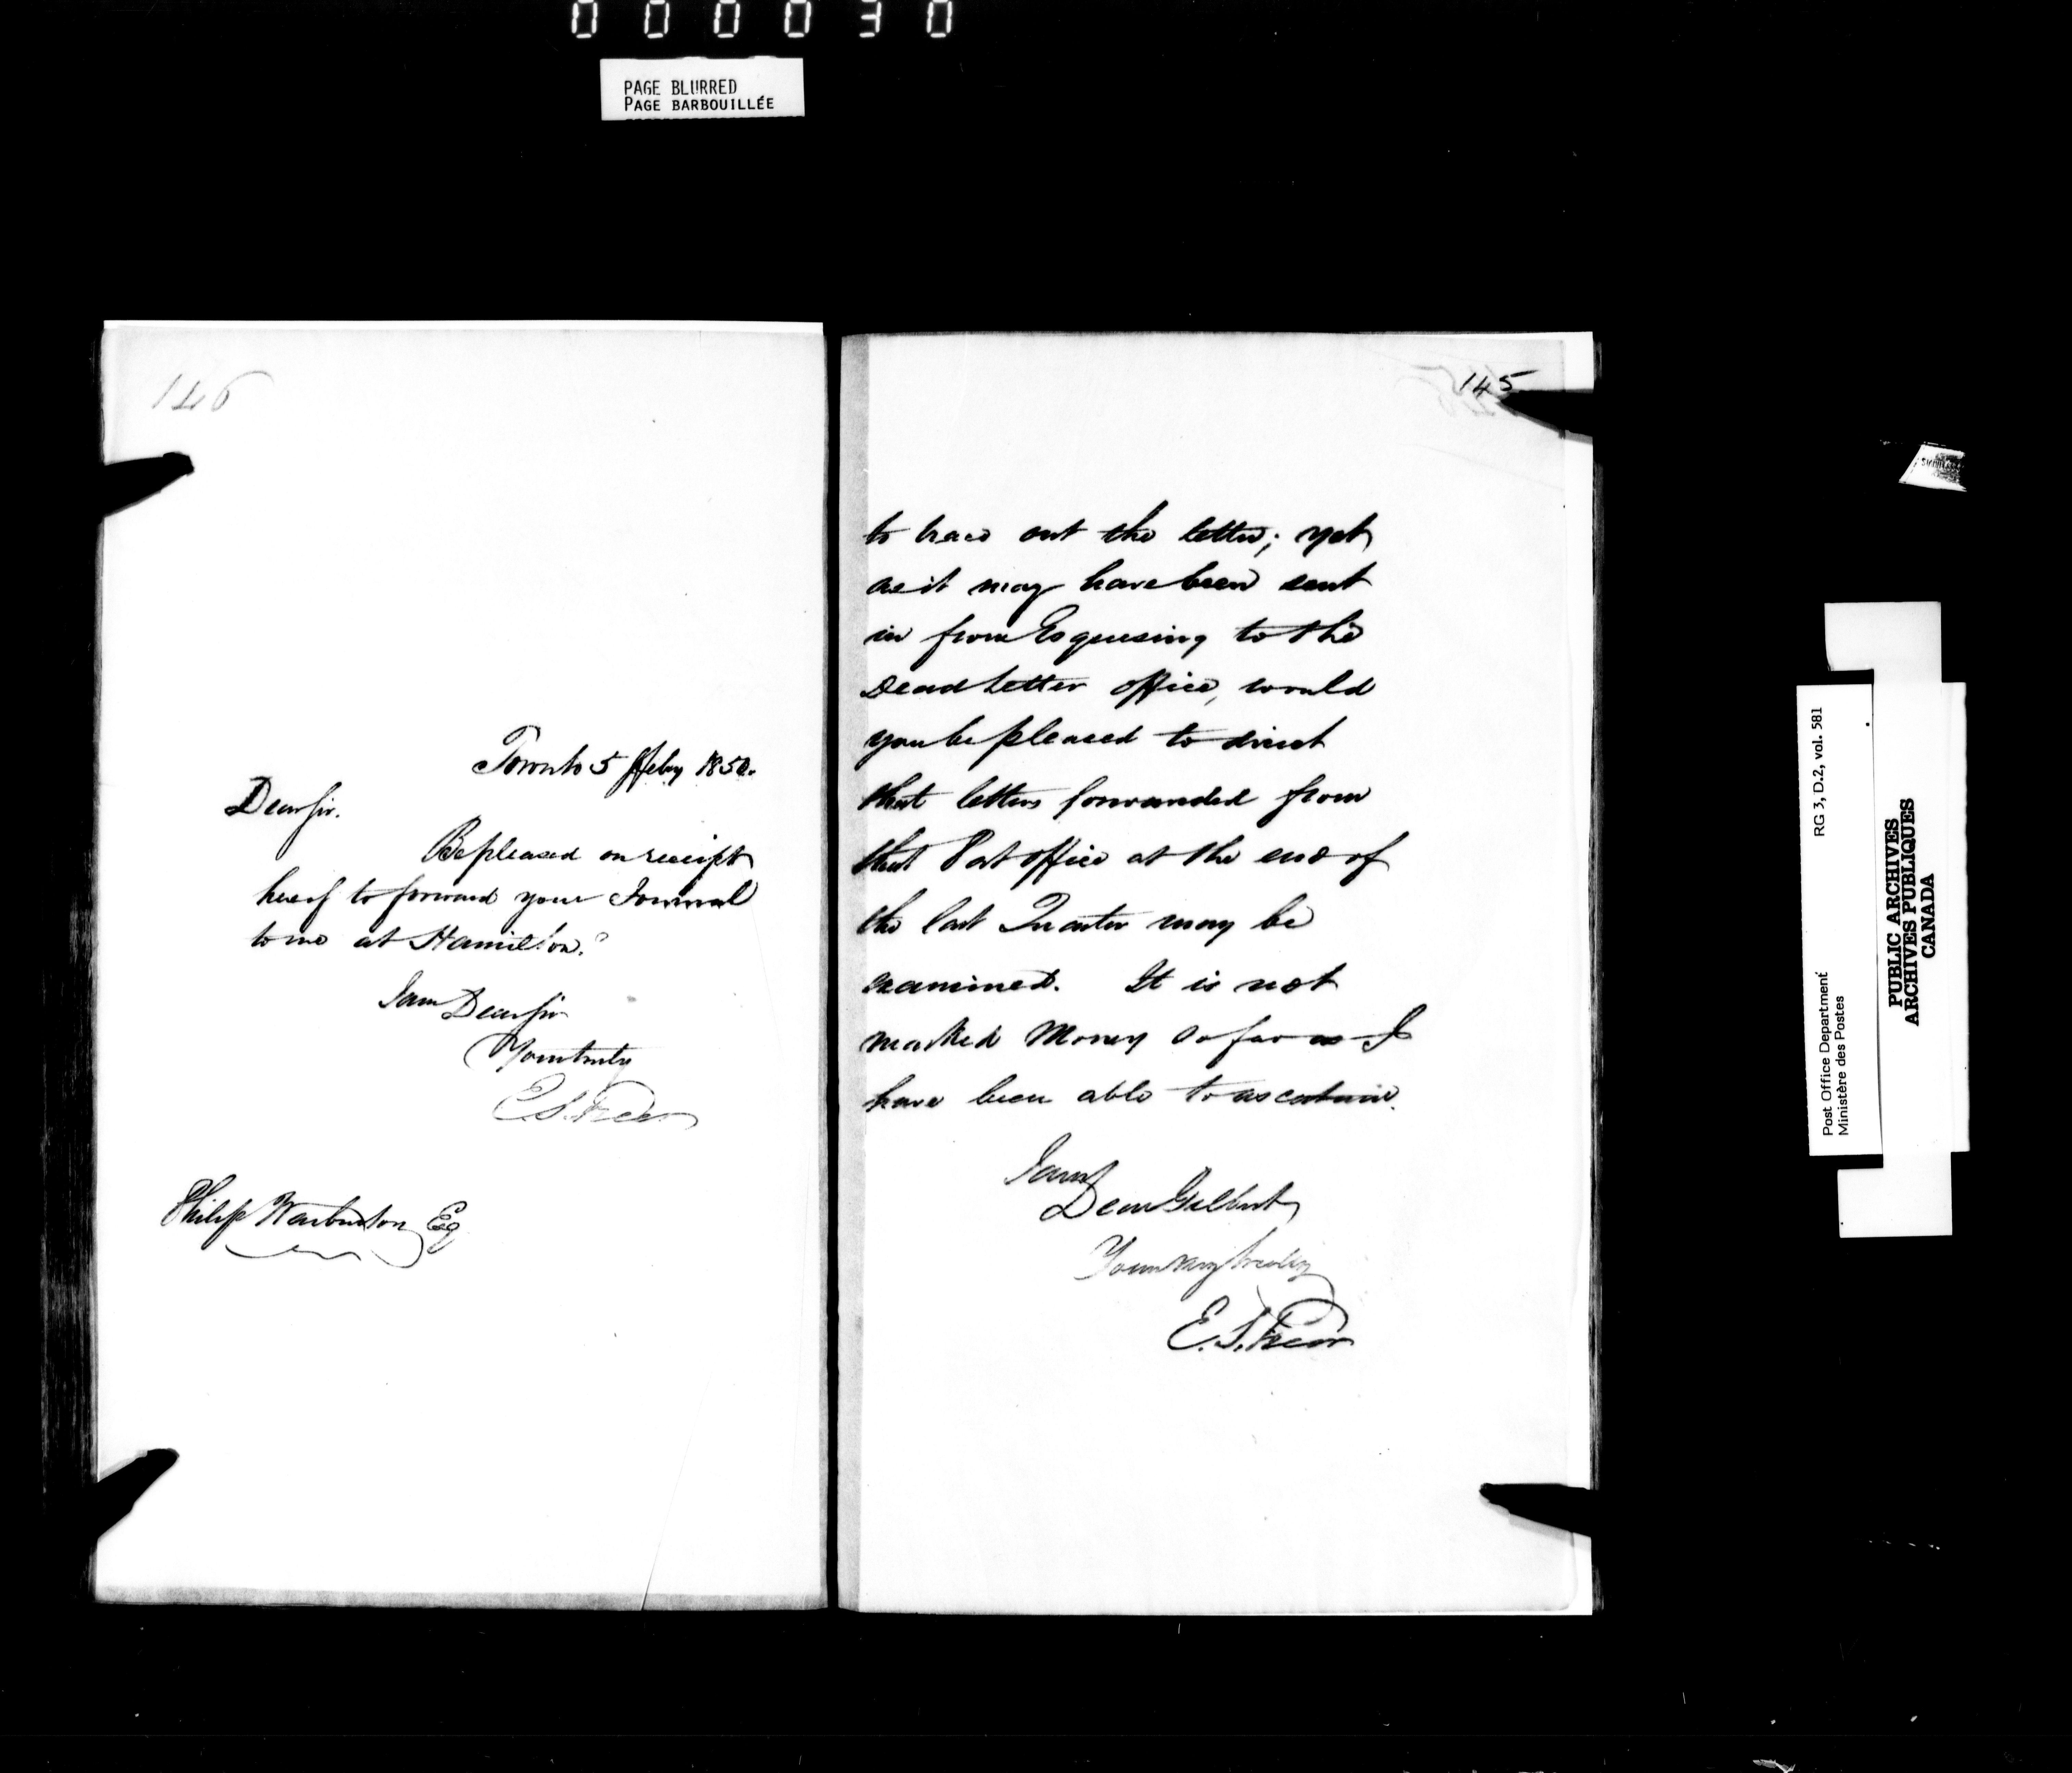 000030
PAGE BLURRED
PAGE BARBOUILLÉE
146
Toronto 5 ffeby 1850.
Dear Sir.
Be pleased on receipt
hereof to forward your Journal
to me at Hamilton.
I am Dear Sir
Yours truly
E.S. Freer
Philip Warburton Esq
145
to trace out the letter; yet
as it may have been sent
in from Esquesing to the
Dead Letter office, would
you be pleased to direct
that letters forwarded from
that Post office at the end of
the last Quarter may be
examined. It is not
marked Money so far as I
have been able to ascertain.
I am
Dear Gilbert
Yours very truly
E.S. Freer
RG 3, D.2, vol. 581
Post Office Department
Ministère des Postes
PUBLIC ARCHIVES
ARCHIVES PUBLIQUES
CANADA